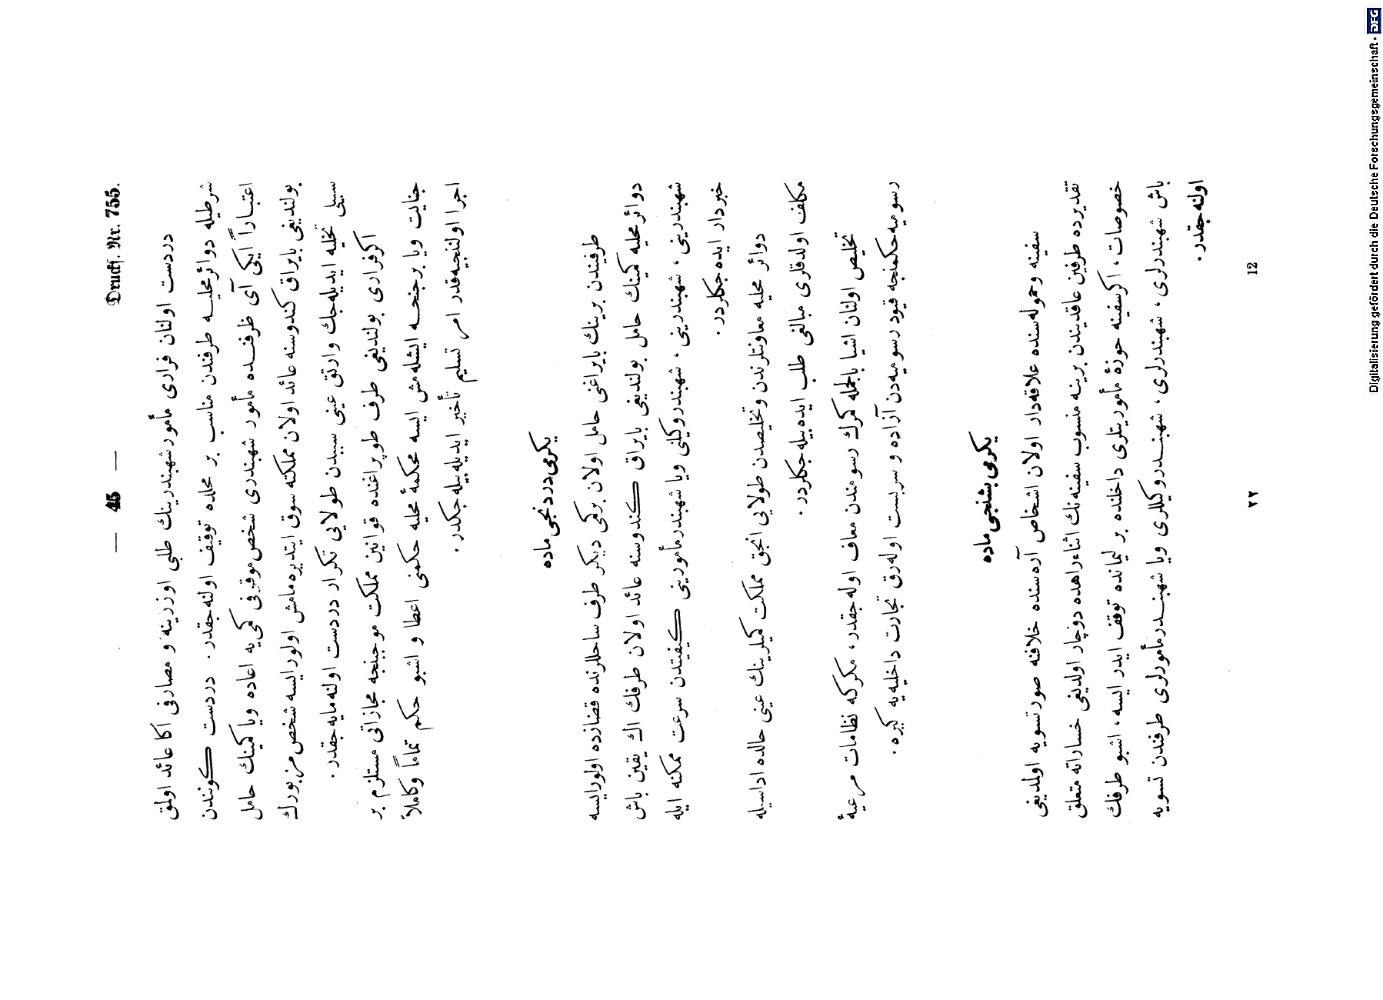 Druck. Nr. 755.
— 45 —
دردست اولنان فراری مأمور شهبندرینك طلبی اوزرینه و مصارفی اكا عائد اولمق
شرطیله دوائر محلیه طرفندن مناسب بر محلده توقیف اولنه جقدر. دردست كونندن
اعتباراً ایكی آی ظرفنده مأمور شهبندری شخص موقوفی كمی یه اعاده ویا كمینك حامل
بولندیغی بایراق كندوسنه عائد اولان مملكته سوق ایتدیره مامش اولورایسه شخص مزبورك
سبیلی تخلیه ایدیله جك وارتق عینی سببدن طولایی تكرار دردست اولنه مایه جقدر.
اكر فراری بولندیغی طرف طوپراغنده قوانین مملكت موجبنجه مجازاتی مستلزم بر
جنایت ویا بر جنحه ایشله مش ایسه محكمهٔ محلیه حكمنی اعطا و اشبو حكم تماماً وكاملاً
اجرا اولنجیه قدر امر تسلیم تأخیر ایدیله بیله جكدر.
یكرمی دردنجی ماده
طرفیندن برینك بایراغنی حامل اولان بر كمی دیكر طرف ساحللرنده قضازده اولورایسه
دوائر محلیه كمینك حامل بولندیغی بایراق كندوسنه عائد اولان طرفك اك یقین باش
شهبندرینی، شهبندرینی، شهبندر وكیلنی ویا شهبندر مأمورینی كیفیتدن سرعت ممكنه ایله
خبردار ایده جكلردر.
دوائر محلیه معاونتلرندن وتخلیصدن طولایی انجق مملكت كمیلرینك عینی حالده اداسیله
مكلف اولدقلری مبالغی طلب ایده بیله جكلردر.
تخلیص اولنان اشیا بالجمله كمرك رسومندن معاف اوله جقدر، مكركه نظامات مرعیهٔ
رسومیه حكمنجه قیود رسومیه دن آزاده و سربست اوله رق تجارت داخلیه یه كیره.
یكرمی بشنجی ماده
سفینه وحموله سنده علاقه دار اولان اشخاص آره سنده خلافنه صورتسویه اولمدیغی
تقدیرده طرفین عاقدیندن برینه منسوب سفینه نك اثناء راهده دوچار اولدیغی خساراته متعلق
خصوصات، اكر سفینه حوزهٔ مأموریتلری داخلنده بر لیمانده توقف ایدر ایسه، اشبو طرفك
باش شهبندرلری، شهبندرلری، شهبندر وكیللری ویا شهبندر مأمورلری طرفندن تسویه
اولنه جقدر.
٢٢
12
Digitalisierung gefördert durch die Deutsche Forschungsgemeinschaft - DFG